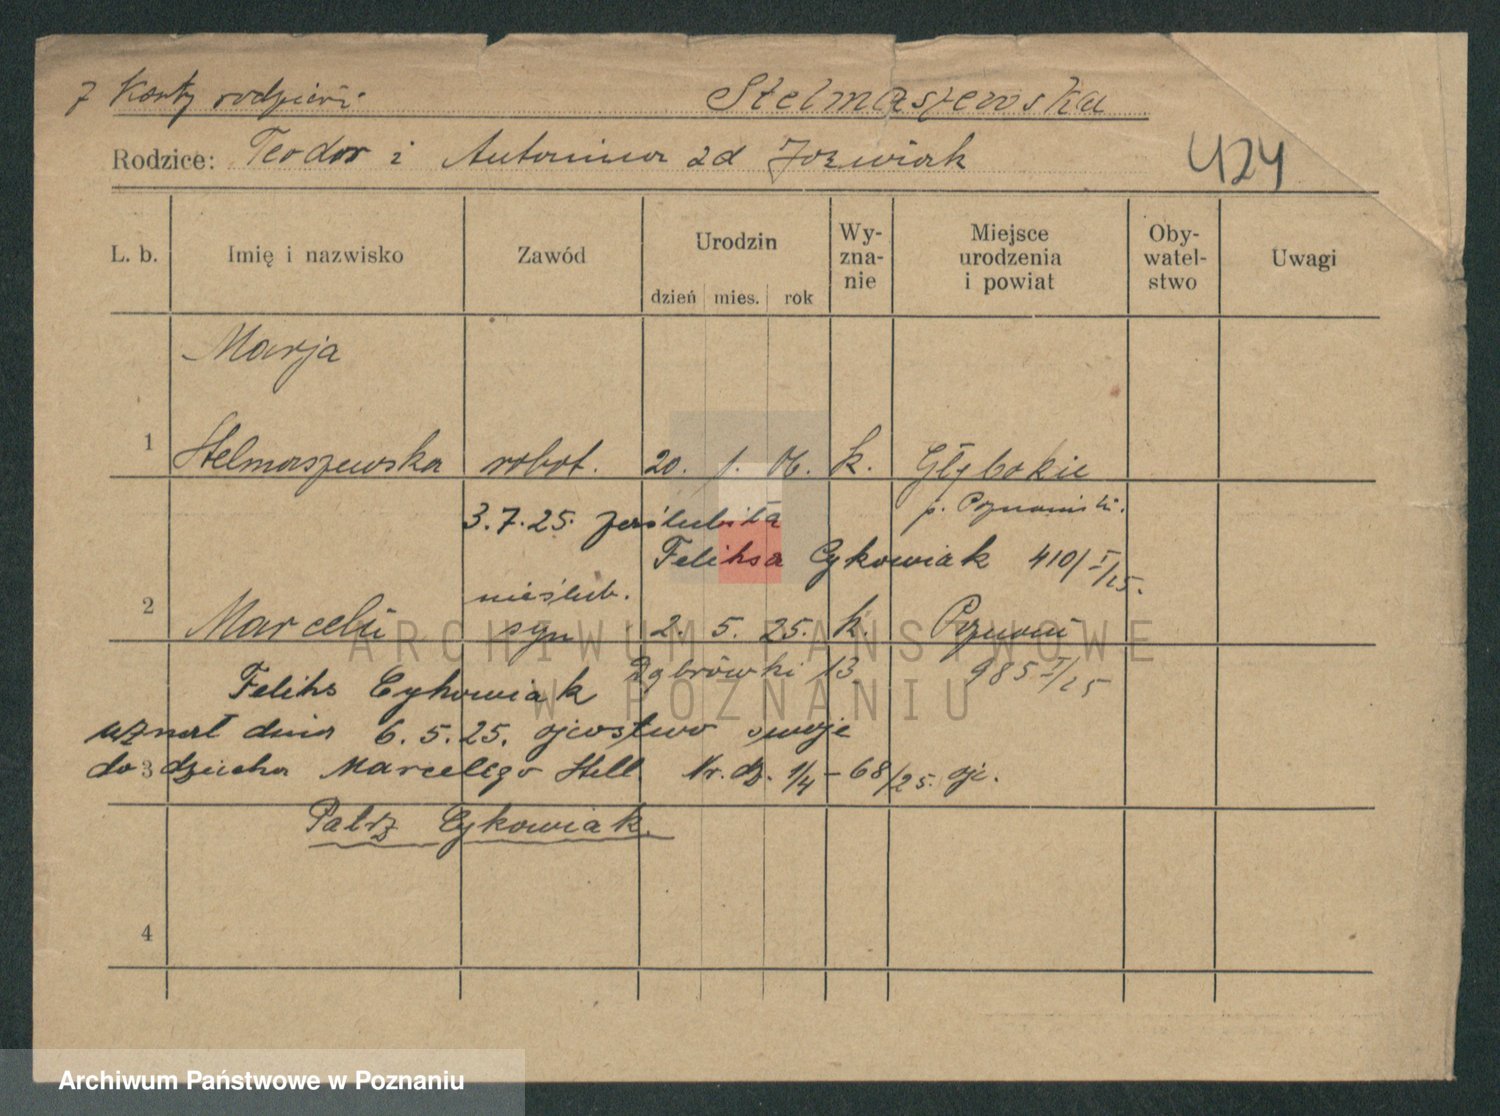 z Karty rodzinnej Stelmaszewska
Rodzice: Teodor i Antonina zd Jozwiak
424
L. b. Imię i nazwisko Zawód Urodzin dzień mies. rok Wy-zna-nie Miejsce urodzenia i powiat Oby-watel-stwo Uwagi
Marja
1 Stelmaszewska robot. 20. 1. 06. k. Głębokie
p. Poznański.
3.7.25. zaślubiła
Feliksa Cykowiak 410/I/25.
nieślub.
2 Marceli syn 2. 5. 25. k. Poznań
Dąbrówki 13 985 I/25
Feliks Cykowiak
uznał dnia 6.5.25. ojcostwo swoje
3
do dziecka Marcelego Stell. Nr. dz. 1/4-68/25. ojc.
Patrz Cykowiak.
4
ARCHIWUM PAŃSTWOWE
W POZNANIU
Archiwum Państwowe w Poznaniu